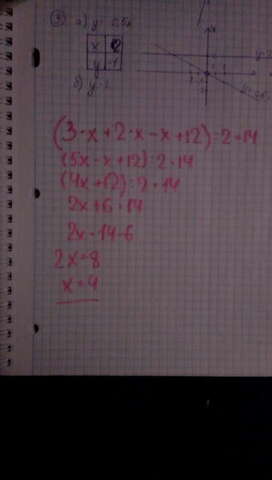 3) a) y 0,5x
x
y
б) y
(3·x+2·x-x+12):2=14
(5x-x+12):2=14
(4x+12):2=14
2x+6=14
2x=14-6
2x=8
x=4